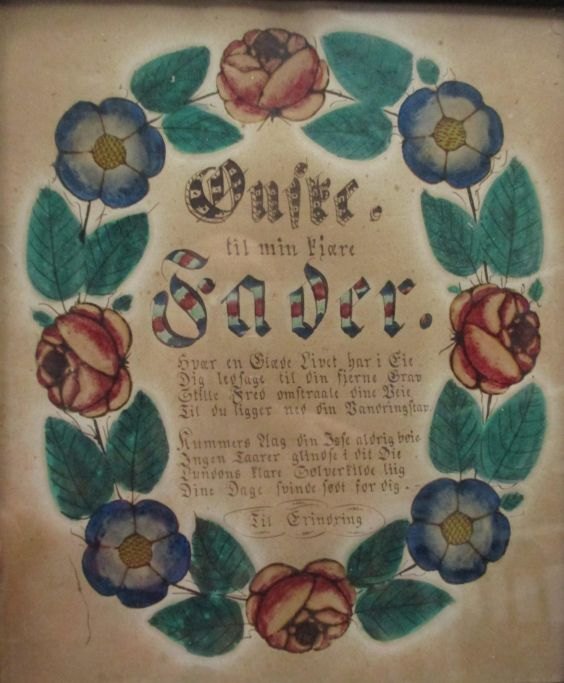 Ønske.
til min kjære
Fader.
Hvær en Glæde Livet har i Eie
Dig ledsage til din fjerne Grav
Stille Fred omstraale dine Veie
Til du ligger ned din Vandringstav.
Kummers Aag din Isse aldrig bøie
Ingen Taarer glindse i dit Øie
klare Sølverkilde liig
Dine Dage svinde sødt for dig. -
Til Erindring